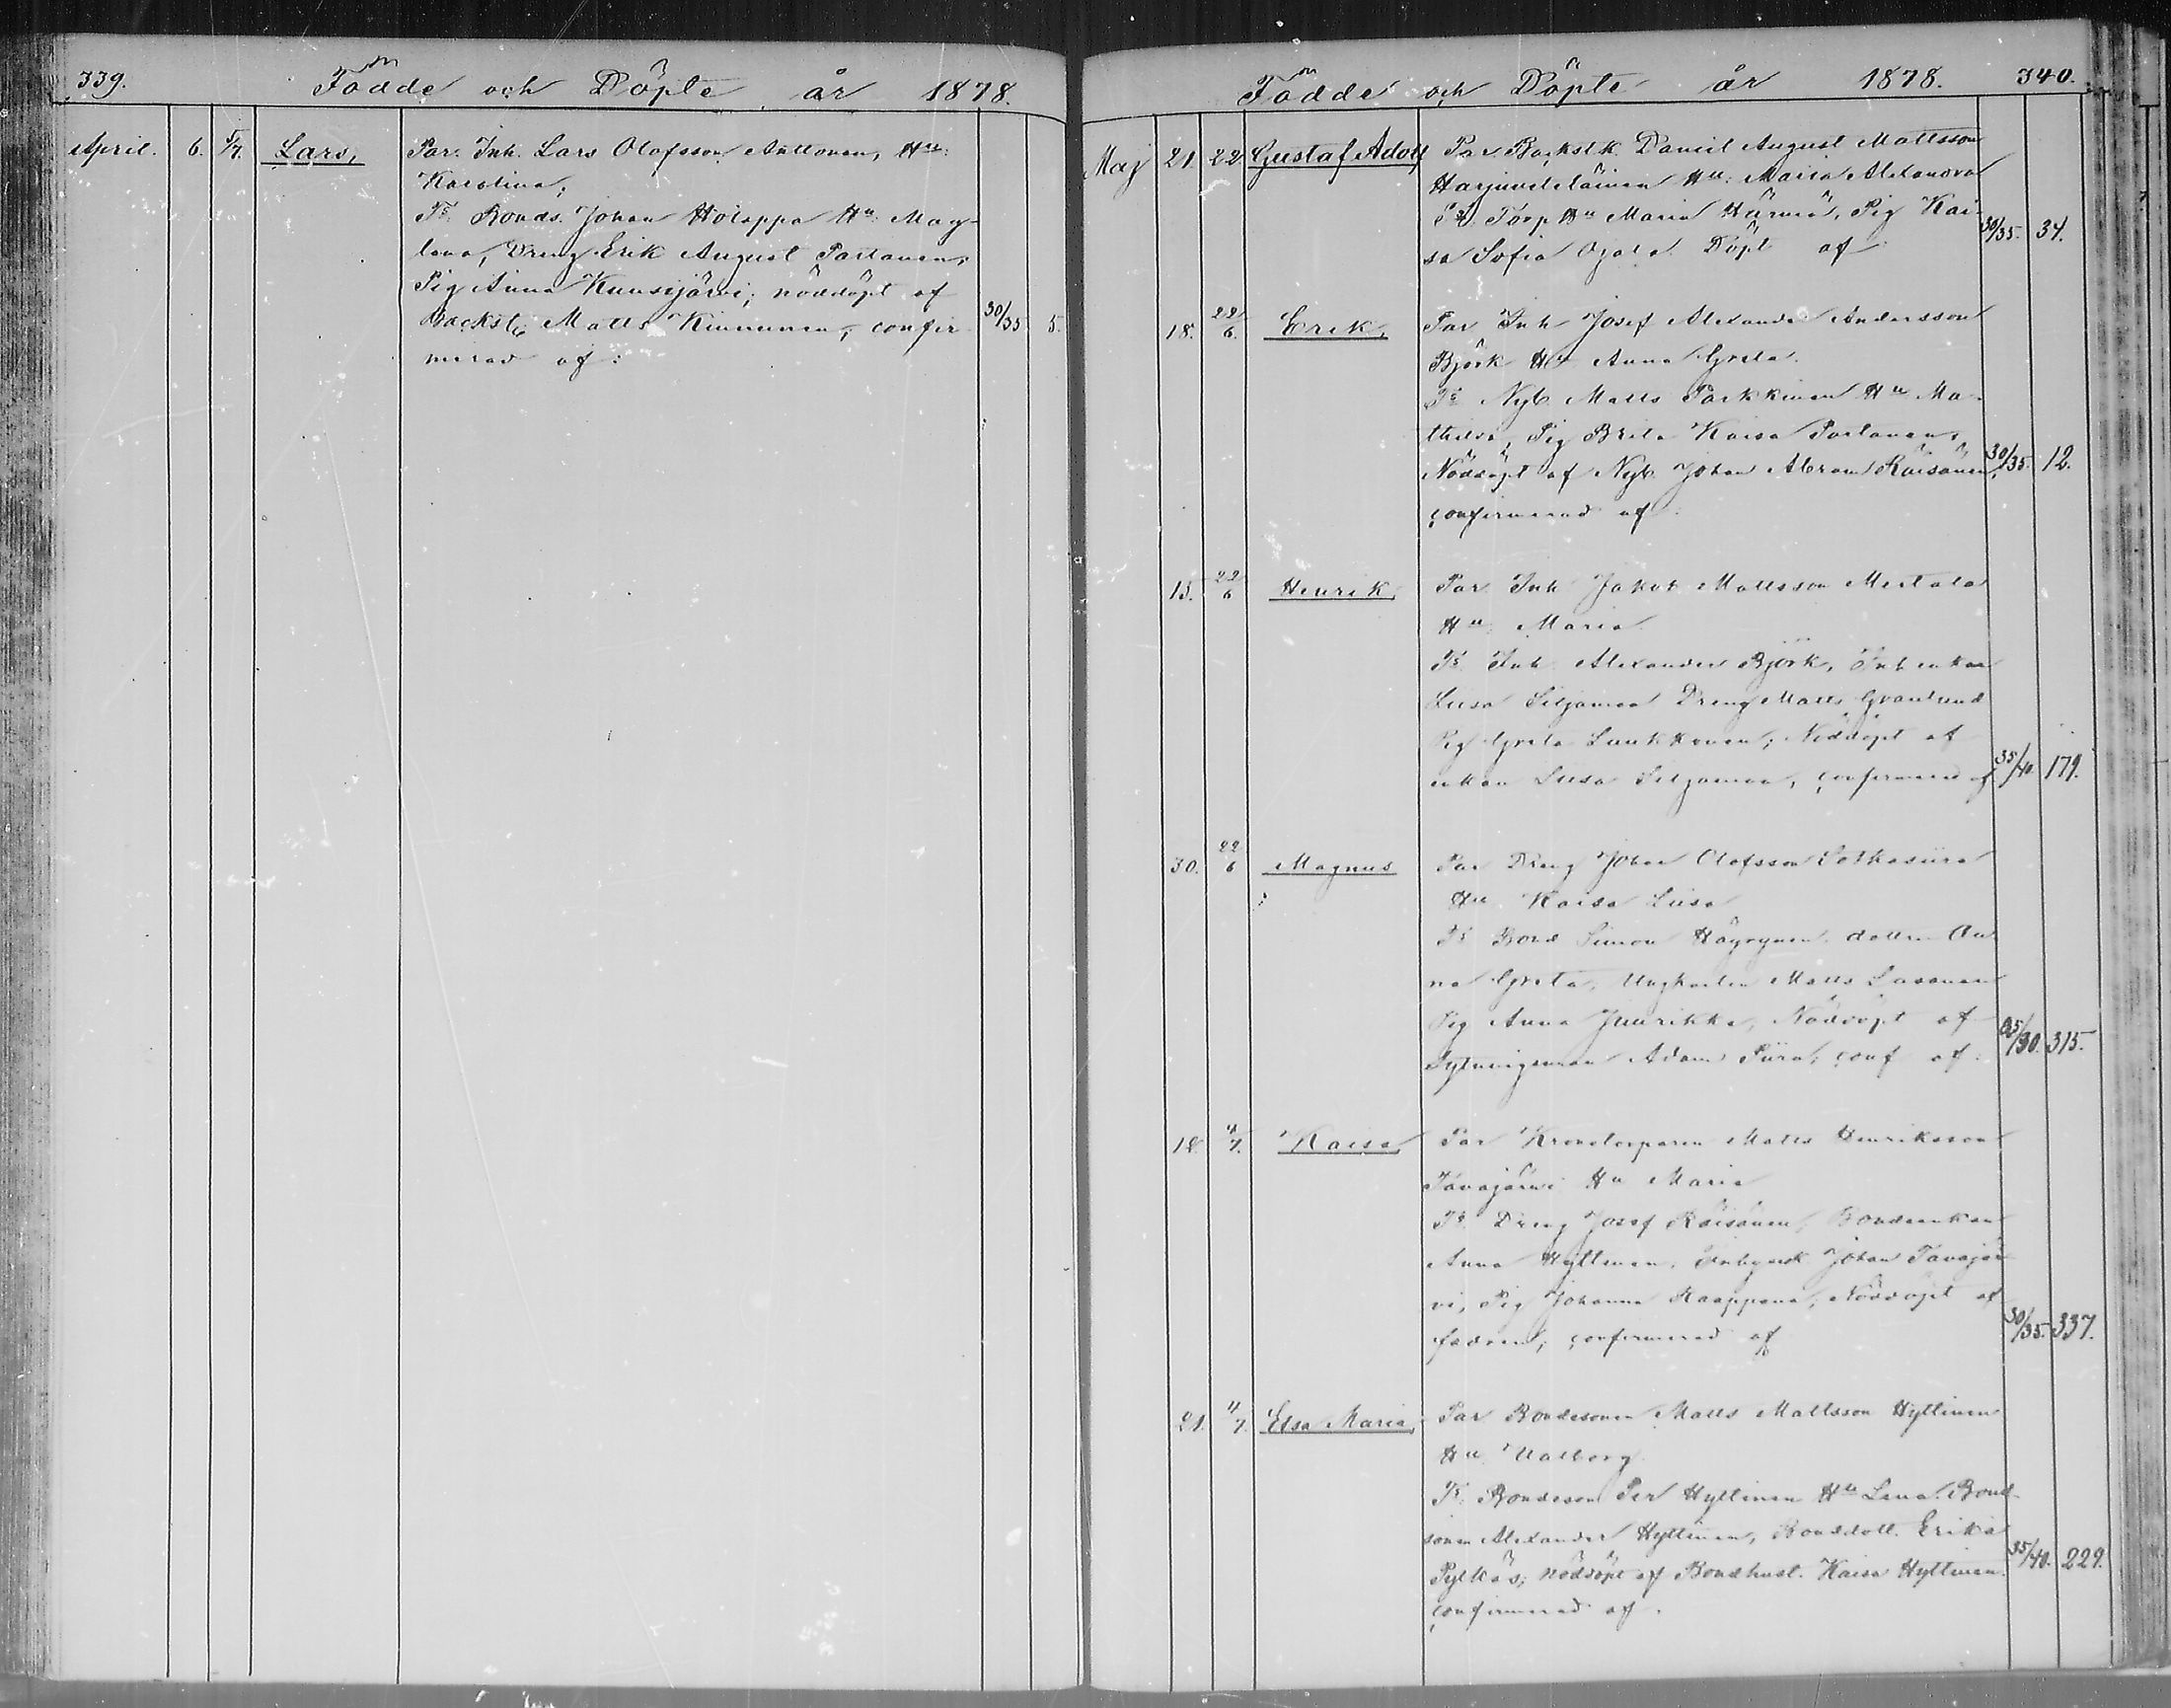 339.
Födde och Döpte år 1878.
April. 6. 5/7. Lars, Par. Inh. Lars Olofsson Anttonen, Hu:
Karolina;
Ts. Bonds. Johan Holappa Hu. Mag-
lena, Dreng Erik August Partanen,
Pig Anna Kuusijärvi; nöddöpt af
Backst. Matts Kinnunen, confir- 30/35 5.
merad af:
Födde och Döpte år 1878. 340.
Maj 21. 22 Gustaf Adolf Par. Backstk. Daniel August Mattsson
Harju Hu: Maria Alexandra
Ts. Torp Hu Maria Härmä, Pig Kai-
sa Sofia Ojala. Döpt af 30/35. 34.
18. 22/6. Erik, Par Inh Josef Alexander Andersson
Björk Hu Anna Greta.
Ts Nyb. Matts Parkkinen Hu Ma-
thilda, Pig Brita Kaisa Partanen,
Nöddöpt af Nyb. Johan Abram Räisänen, 30/35. 12.
confirmerad af:
15. 22/6 Henrik, Par Inh Jakob Mattsson Mertala
Hu: Maria
Ts Inh. Alexander Björk, Inh enkan
Liisa Siljamaa Dreng Matts Granlund
Pig Greta Luukkonen; Nöddöpt af
enkan Liisa Siljamaa, confirmerad af 35/40. 179.
30. 22/6 Magnus Par Dreng Johan Olofsson Sotkasiira
Hu. Kaisa Liisa
Ts Bond Simon Häyrynen dottren An-
na Greta, Ungkarlen Matts Lasanen
Pig Anna Juurikka, Nöddöpt af
Sytningsman Adam Piira; conf af: 25/30. 315.
18. 4/7. Kaisa, Par Kronotorparen Matts Henriksson
Tavajärvi Hu Maria
Ts. Dreng Josef Räisänen, Bondeenkan
Anna Hyttinen, Inhysek Johan Tavajär-
vi, Pig Johanna Kaappana; Nöddöpt af
fadren; confirmerad af 30/35. 337.
21. 4/7. Elsa Maria, Par Bondesonen Matts Mattsson Hyttinen
Hu Valborg
Ts: Bondeson Per Hyttinen Hu Lena. Bond-
sonen Alexander Hyttinen, Bonddott. Erika
Pylkäs; nöddöpt af Bondhust. Kaisa Hyttinen. 35/40. 229.
confirmerad af.